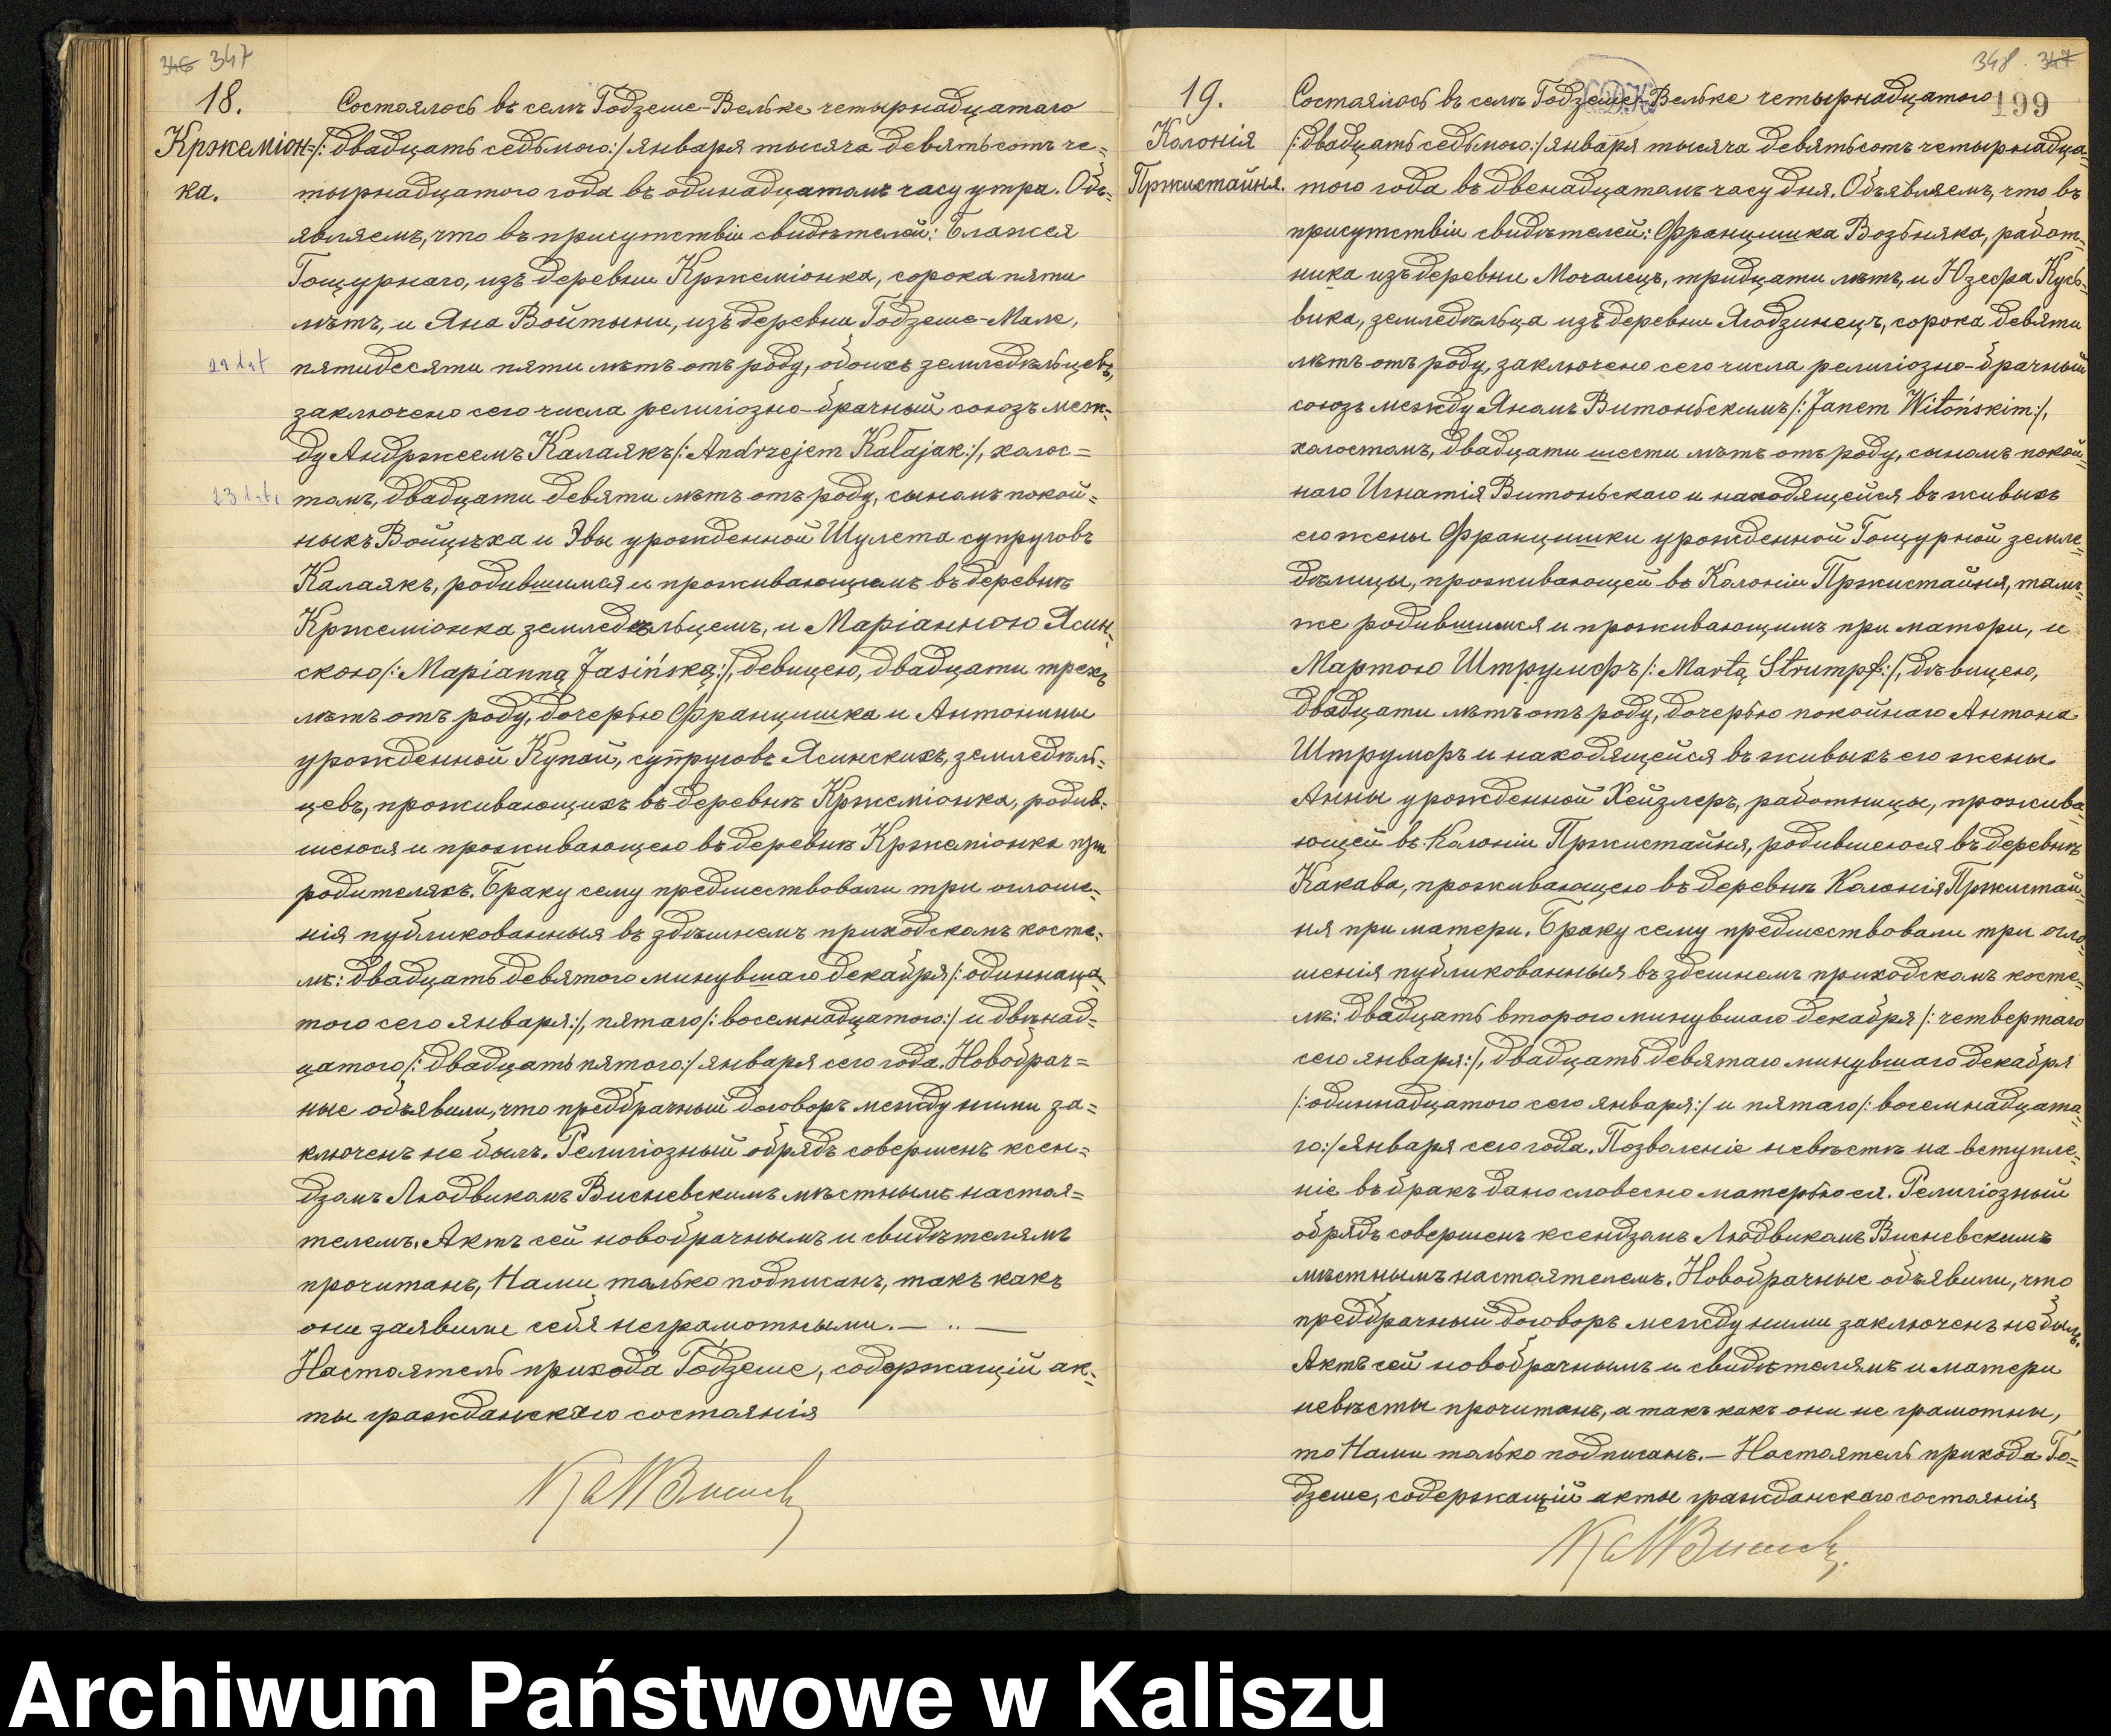 346 347
18.
Кржеміон=
ка.
Состоялось въ селѣ Годзеше-Вельке четырнадцатаго
/: двадцать седьмого:/ января тысяча девятьсотъ че=
тырнадцатого года въ одинадцатомъ часу утра. Объ=
являемъ, что въ присутствіи свидѣтелей: Блажея
Гощурнаго, изъ деревни Кржеміонка, сорока пяти
лѣтъ, и Яна Войтыни, изъ деревни Годзеше-Мале,
29 lat
пятидесяти пяти лѣтъ отъ роду, обоихъ земледѣльцевъ,
заключено сего числа религіозно-брачный союзъ меж=
ду Андржеемъ Калаякъ /: Andrzejem Kałajak:/, холос=
23 lat
томъ, двадцати девяти лѣтъ отъ роду, сыномъ покой=
ныхъ Войцѣха и Эвы урожденной Шулета супруговъ
Калаякъ, родившимся и проживающимъ въ деревнѣ
Кржеміонка земледѣльцемъ, и Маріанною Ясин=
скою /: Маріанną Jasińską:/, девицею, двадцати трехъ
лѣтъ отъ роду, дочерью Францишка и Антонины
урожденной Купай, супруговъ Ясинскихъ, земледѣль=
цевъ, проживающихъ въ деревнѣ Кржеміонка, родив=
шеюся и проживающею въ деревнѣ Кржеміонка при
родителяхъ. Браку сему предшествовали три оглаше=
нія публикованныя въ здѣшнемъ приходскомъ косте=
лѣ: двадцать девятого минувшаго декабря /: одиннаца=
того сего января:/, пятаго /: восемнадцатого:/ и двѣнад=
цатого /: двадцать пятого:/ января сего года. Новобрач=
ные объявили, что предбрачный договоръ между ними за=
ключенъ не былъ. Религіозный обрядъ совершенъ ксен=
дзомъ Людвикомъ Висневскимъ мѣстнымъ настоя=
телемъ. Актъ сей новобрачнымъ и свидѣтелямъ
прочитанъ, Нами только подписанъ, такъ какъ
они заявили себя неграмотными. — .. —
Настоятель прихода Годзеше, содержащій ак=
ты гражданскаго состоянія
348. 347
199
19.
Колонія
Пржистайня.
Состоялось въ селѣ Годзеше-Вельке четырнадцатого
/: двадцать седьмого:/ января тысяча девятьсотъ четырнадца=
того года въ двенадцатомъ часу дня. Объявляемъ, что въ
присутствіи свидѣтелей: Францишка Возьняка, работ=
ника изъ деревни Мочалецъ, тридцати лѣтъ, и Юзефа Кусь=
вика, земледѣльца изъ деревни Ягодзинецъ, сорока девяти
лѣтъ отъ роду, заключено сего числа религіозно-брачный
союзъ между Яномъ Витоньскимъ /: Janem Witońskim:/,
холостомъ, двадцати шести лѣтъ отъ роду, сыномъ покой=
наго Игнатія Витоньскаго и находящейся въ живыхъ
его жены Францишки урожденной Гощурной земле=
дѣлицы, проживающей въ Колоніи Пржистайня, тамъ=
же родившимся и проживающимъ при матери, и
Мартою Штрумпфъ /: Martą Strumpf:/, дѣвицею,
двадцати лѣтъ отъ роду, дочерью покойнаго Антона
Штрумфъ и находящейся въ живыхъ его жены
Анны урожденной Хейзлеръ, работницы, прожива=
ющей въ Колоніи Пржистайня, родившеюся въ деревнѣ
Какава, проживающею въ деревнѣ Колонія Пржистай=
ня при матери. Браку сему предшествовали три огла=
шенія публикованныя въ здешнемъ приходскомъ косте=
лѣ: двадцать второго минувшаго декабря /: четвертаго
сего января:/, двадцать девятаго минувшаго декабря
/: одиннадцатого сего января:/ и пятаго /: восемнадцата=
го:/ января сего года. Позволеніе невѣстѣ на вступле=
ніе въ бракъ дано словесно матерью ея. Религіозный
обрядъ совершенъ ксендзомъ Людвикомъ Висневскимъ
мѣстнымъ настоятелемъ. Новобрачные объявили, что
предбрачный договоръ между ними заключенъ не былъ.
Актъ сей новобрачнымъ и свидѣтелямъ и матери
невѣсты прочитанъ, а такъ какъ они не грамотны,
то Нами только подписанъ. — Настоятель прихода Го=
дзеше, содержащій акты гражданскаго состоянія
Archiwum Państwowe w Kaliszu